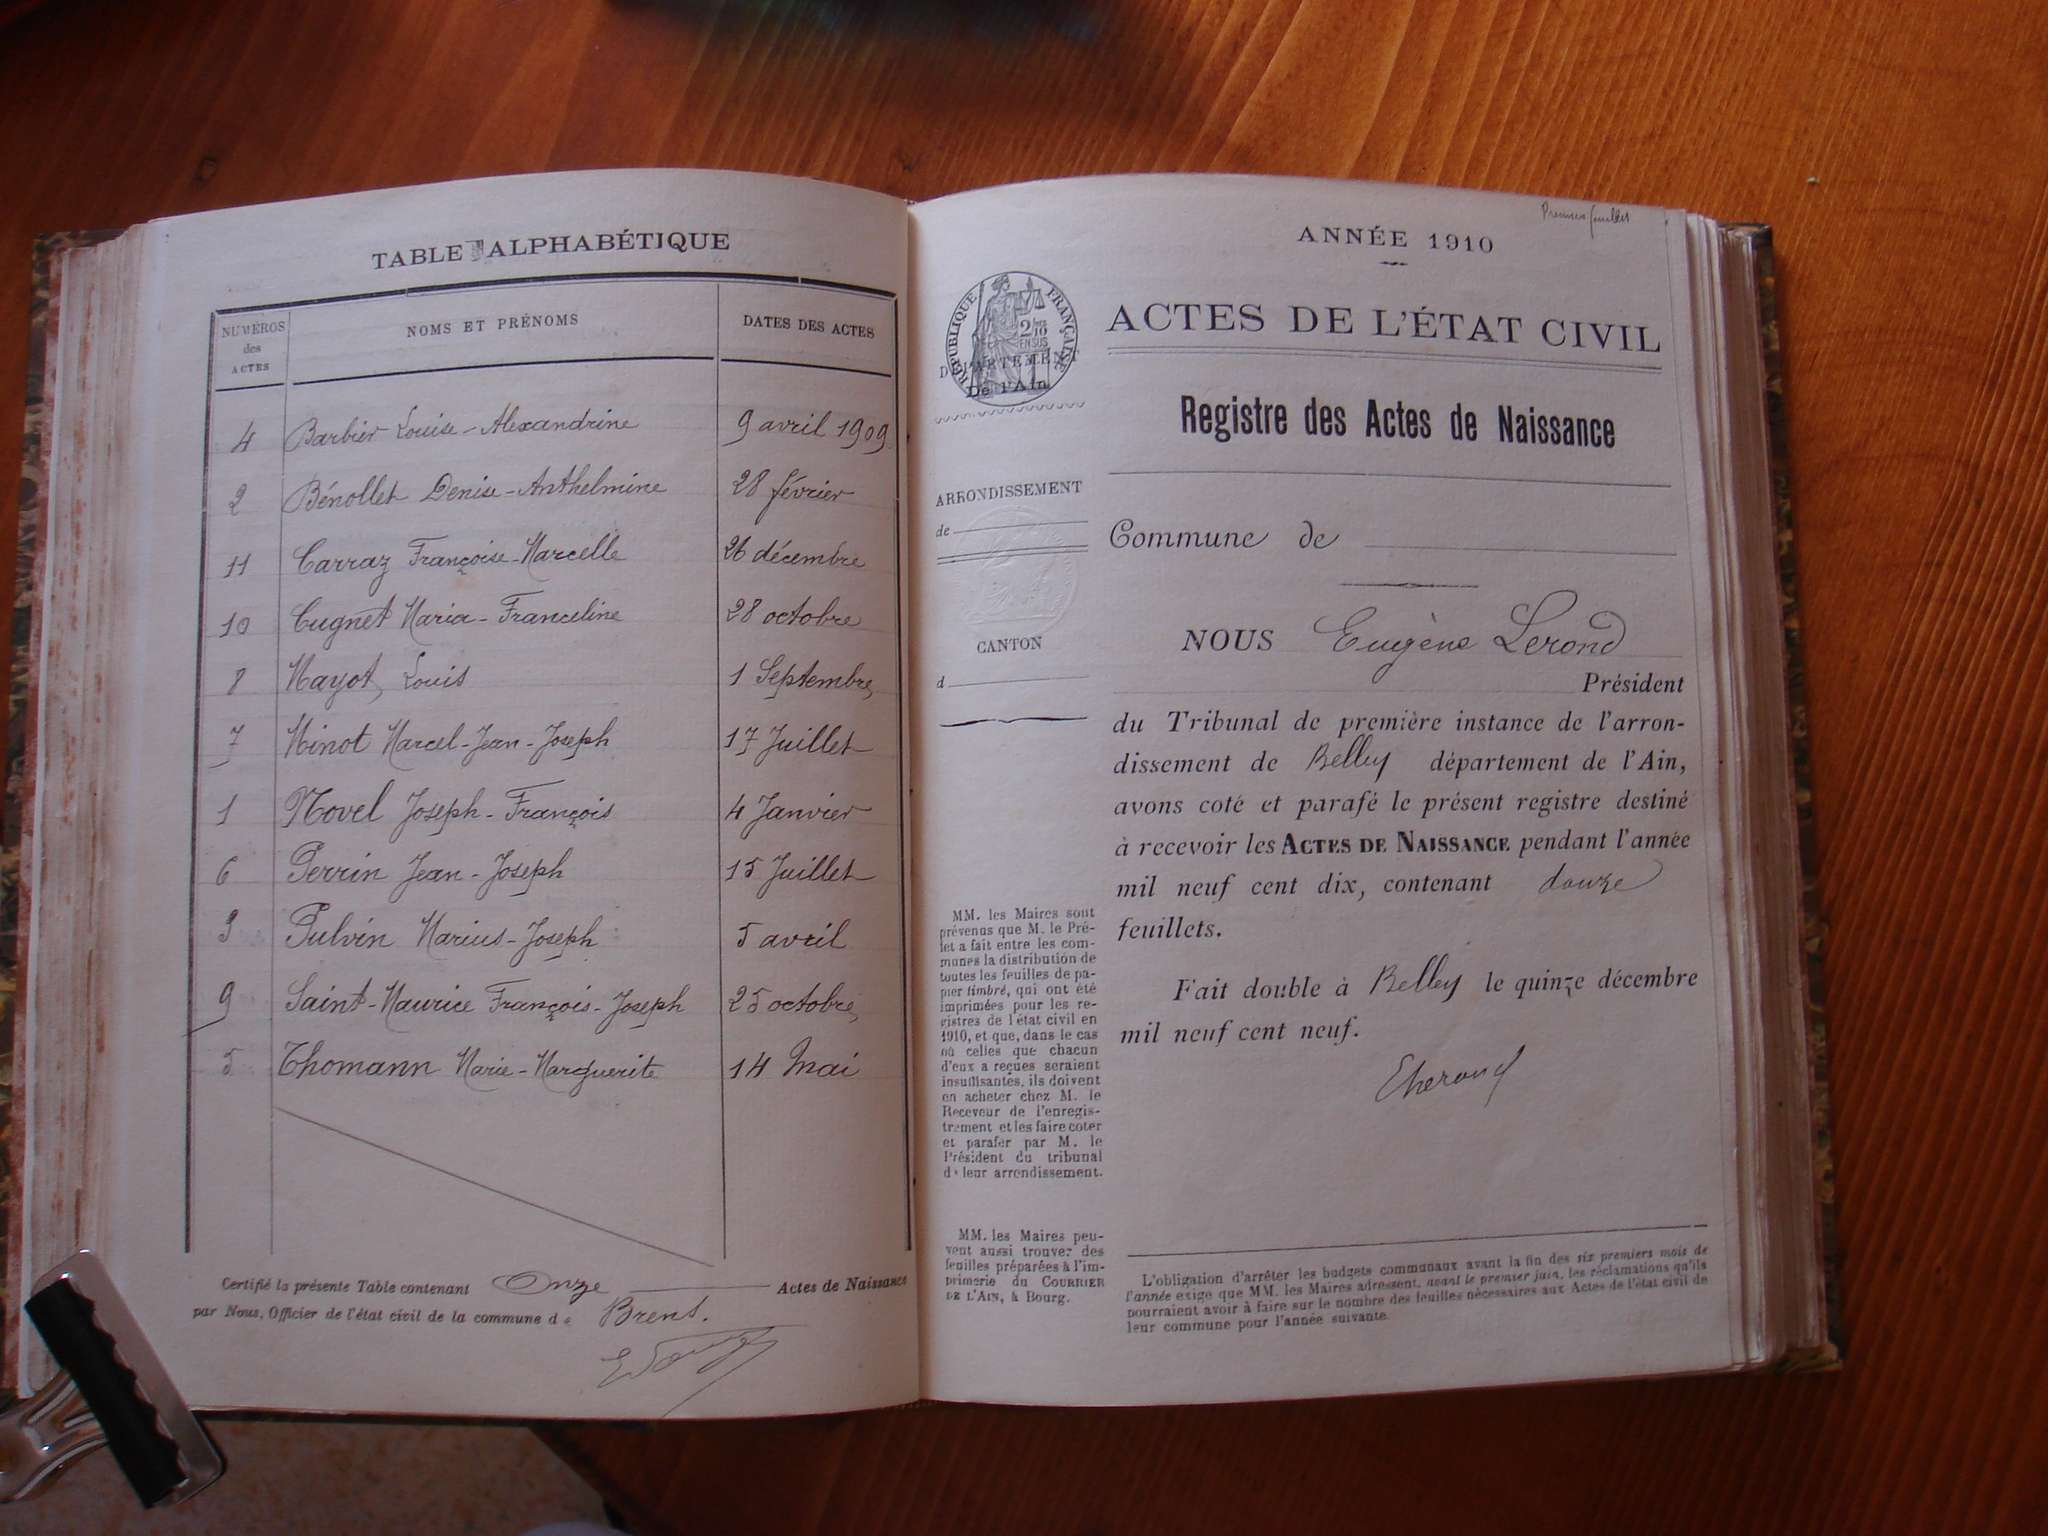 TABLE ALPHABÉTIQUE
NUMÉROS des ACTES NOMS ET PRÉNOMS DATES DES ACTES
4 Barbier Louise-Alexandrine 9 avril 1909
2 Bénollet Denise-Anthelmine 28 février
11 Carraz Françoise-Marcelle 26 décembre
10 Cugnet Maria-Franceline 28 octobre
8 Mayot, Louis 1 Septembre,
7 Minot Marcel-Jean-Joseph 17 Juillet
1 Novel Joseph-François 4 Janvier
6 Perrin Jean-Joseph 15 Juillet
3 Pulvin Marius-Joseph 5 avril
9 Saint-Maurice François-Joseph 25 octobre,
5 Thomann Marie-Marguerite 14 Mai
Certifié la présente Table contenant Onze Actes de Naissance
par Nous, Officier de l'état civil de la commune de Brens.
Premier feuillet
ANNÉE 1910
RÉPUBLIQUE FRANÇAISE
2/10 EN SUS
DÉPARTEMENT
De l'Ain
ACTES DE L'ÉTAT CIVIL
Registre des Actes de Naissance
ARRONDISSEMENT
de
CANTON
d
Commune de
NOUS Eugène Lerond
Président
du Tribunal de première instance de l'arron-
dissement de Belley département de l'Ain,
avons coté et parafé le présent registre destiné
à recevoir les ACTES DE NAISSANCE pendant l'année
mil neuf cent dix, contenant douze
feuillets.
Fait double à Belley le quinze décembre
mil neuf cent neuf.
MM. les Maires sont
prévenus que M. le Pré-
fet a fait entre les com-
munes la distribution de
toutes les feuilles de pa-
pier timbré, qui ont été
imprimées pour les re-
gistres de l'état civil en
1910, et que, dans le cas
où celles que chacun
d'eux a reçues seraient
insuffisantes, ils doivent
en acheter chez M. le
Receveur de l'enregis-
trement et les faire coter
et parafer par M. le
Président du tribunal
de leur arrondissement.
MM. les Maires peu-
vent aussi trouver des
feuilles préparées à l'im-
primerie du COURRIER
DE L'AIN, à Bourg.
L'obligation d'arrêter les budgets communaux avant la fin des six premiers mois de
l'année exige que MM. les Maires adressent, avant le premier juin, les réclamations qu'ils
pourraient avoir à faire sur le nombre des feuilles nécessaires aux Actes de l'état civil de
leur commune pour l'année suivante.